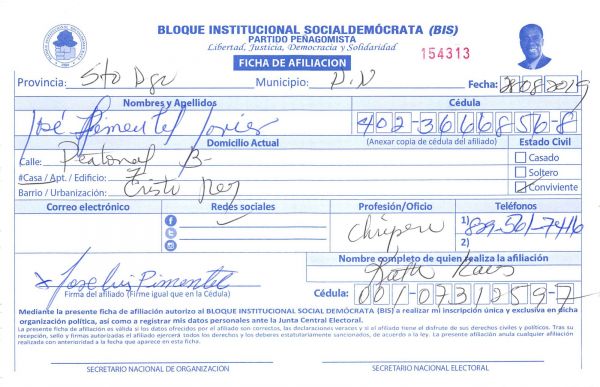 BLOQUE INSTITUCIONAL SOCIALDEMÓCRATA (BIS)
PARTIDO PEÑAGOMISTA
Libertad, Justicia, Democracia y Solidaridad
FICHA DE AFILIACION
154313
Provincia: Sto Dgo Municipio: D.N Fecha: 28082019
Nombres y Apellidos Cédula
José Pimentel 402-3666856-8
Domicilio Actual (Anexar copia de cédula del afiliado) Estado Civil
Calle: Peatonal B- Casado
#Casa / Apt. / Edificio: 7 Soltero
Barrio / Urbanización: Cristo Rey Conviviente
Correo electrónico Redes sociales Profesión/Oficio Teléfonos
Chiripero 1) 829-561-7416
2)
Nombre completo de quien realiza la afiliación
Jose Luis Pimentel
Firma del afiliado (Firme igual que en la Cédula) Cédula: 001-0731259-7
Mediante la presente ficha de afiliación autorizo al BLOQUE INSTITUCIONAL SOCIAL DEMÓCRATA (BIS) a realizar mi inscripción única y exclusiva en dicha
organización política, así como a registrar mis datos personales ante la Junta Central Electoral.
La presente ficha de afiliación es válida si los datos ofrecidos por el afiliado son correctos, las declaraciones veraces y si al afiliado tiene el disfrute de sus derechos civiles y políticos. Tras su
recepción, sello y firmas autorizadas el afiliado ejercerá todos los derechos y los deberes estatutariamente sancionados, de acuerdo a la ley. La presente afiliación anula cualquier afiliación
realizada con anterioridad a la fecha que aparece en esta ficha.
SECRETARIO NACIONAL DE ORGANIZACIÓN SECRETARIO NACIONAL ELECTORAL